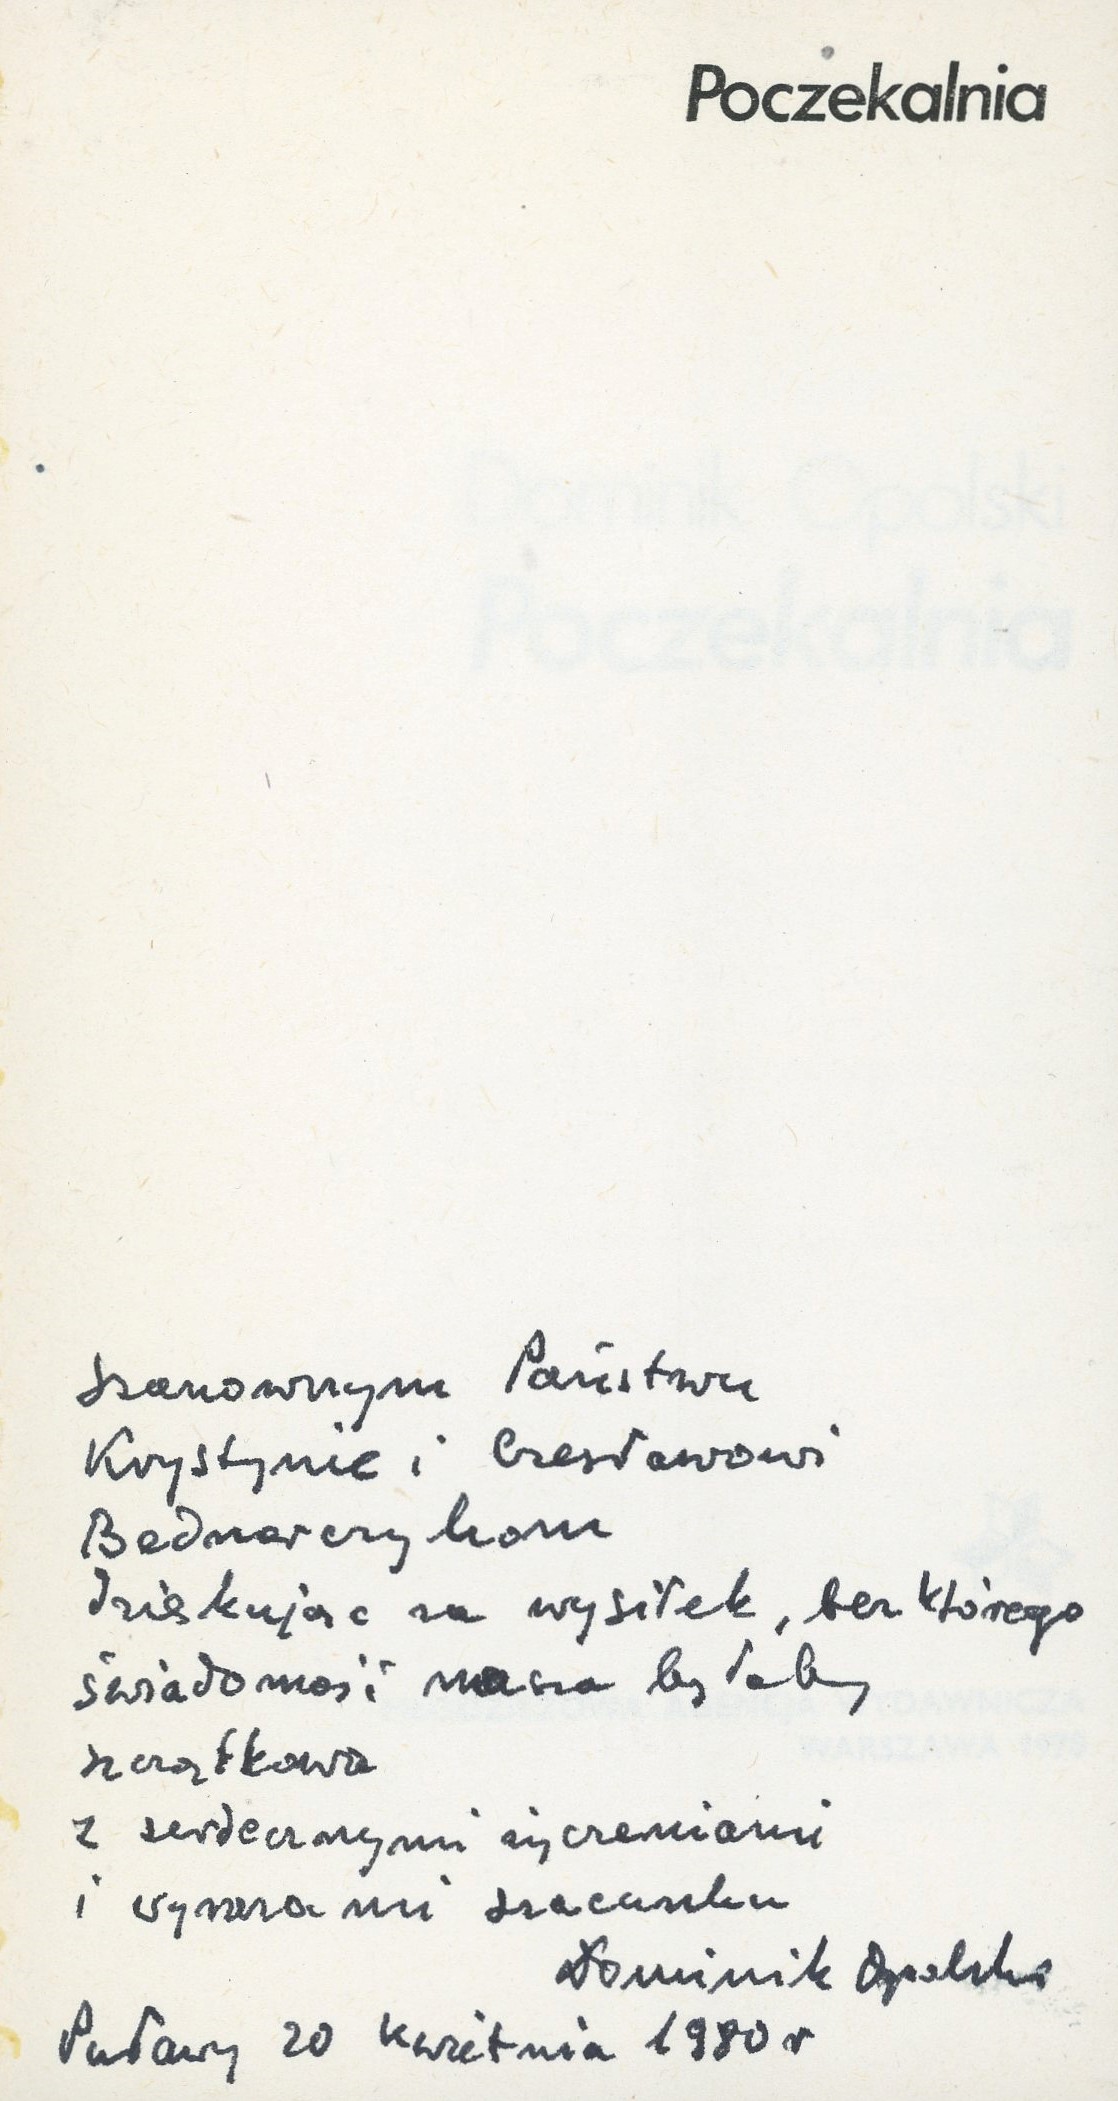 Poczekalnia
Dominik Opolski
Poczekalnia
Szanownym Państwu
Krystynie i Czesławowi
Bednarczykom
dziękując za wysiłek, bez którego
świadomość nasza byłaby
szczątkowa
MŁODZIEŻOWA AGENCJA WYDAWNICZA
WARSZAWA 1978
z serdecznymi życzeniami
i wyrazami szacunku
Dominik Opolski
Puławy 20 kwietnia 1980 r